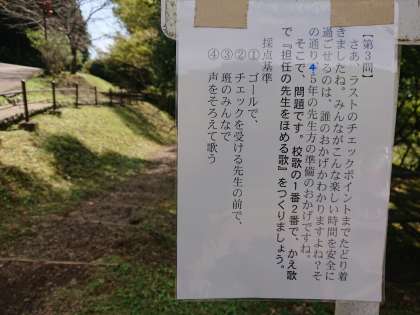 【第3問】
さあ、ラストのチェックポイントまでたどり着
きましたね。みんながこんな楽しい時間を安全に
過ごせるのは、誰のおかげかわかりますよね?そ
の通り45年の先生方の準備のおかげですね。
そこで、問題です。校歌の1番2番で、かえ歌
で『担任の先生をほめる歌』をつくりましょう。
採点基準
①ゴールで、
②チェックを受ける先生の前で、
③班のみんなで
④声をそろえて歌う